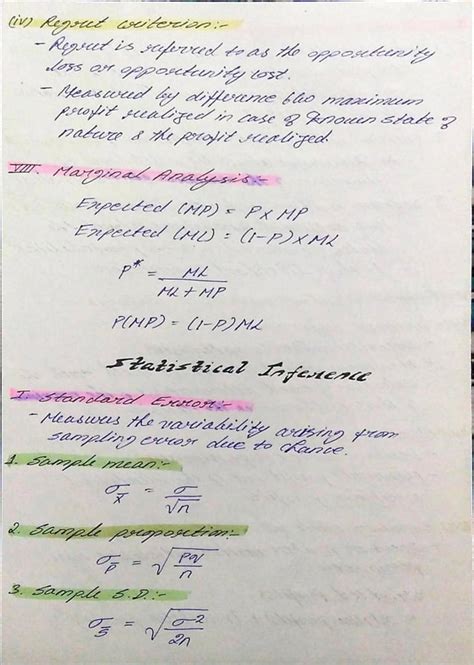 (iv) Regret Criterion:-
- Regret is referred to as the opportunity
loss or opportunity cost.
- Measured by difference b/w maximum
profit realized in case of known state of
nature & the profit realized.
VIII. Marginal Analysis:-
Expected (MP) = P x MP
Expected (ML) = (1-P) x ML
P* = ML / ML + MP
P(MP) = (1-P) ML
Statistical Inference
I. Standard Error:-
- Measures the variability arising from
sampling error due to chance.
1. Sample mean:-
σx̄ = σ / √n
2. Sample proportion:-
σp̄ = √(pq / n)
3. Sample S.D.:-
σs̄ = √(σ² / 2n)